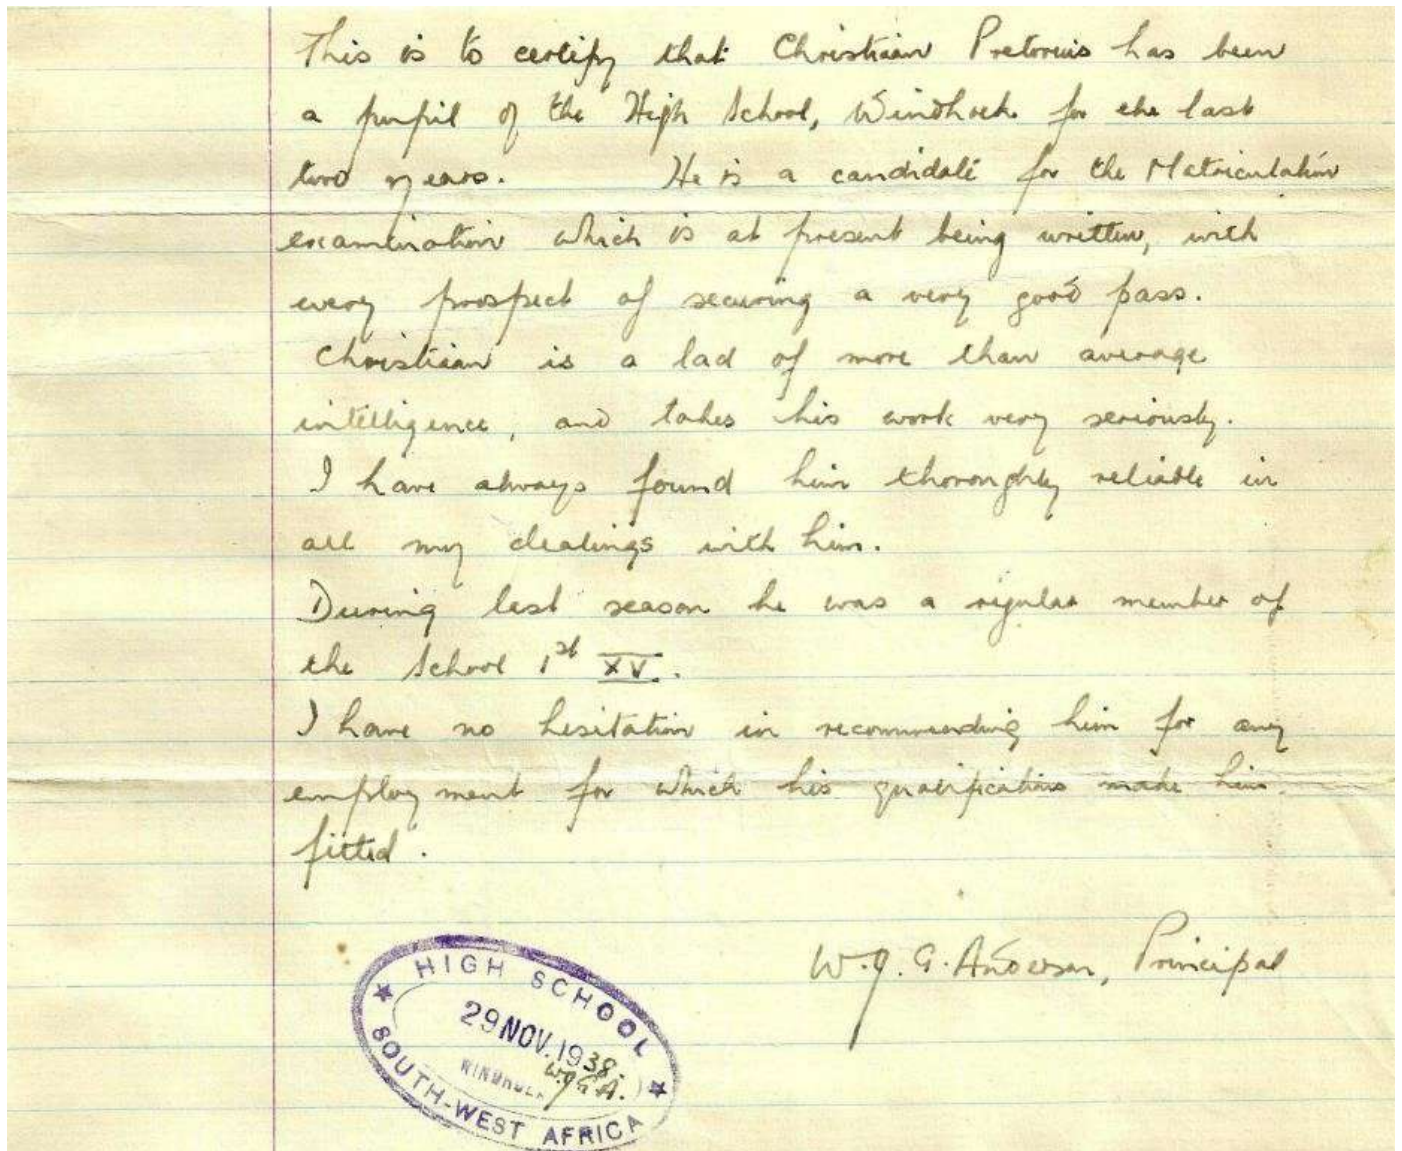 This is to certify that Christiaan Pretorius has been
a pupil of the High School, Windhoek for the last
two years. He is a candidate for the Matriculation
examination which is at present being written, with
every prospect of securing a very good pass.
Christiaan is a lad of more than average
intelligence, and takes his work very seriously.
I have always found him thoroughly reliable in
all my dealings with him.
During last season he was a regular member of
the School 1st XV.
I have no hesitation in recommending him for any
employment for which his qualifications make him
fitted.
W.J.G. Anderson, Principal
HIGH SCHOOL
29 NOV. 1938.
WINDHOEK
W.J.G.A.
SOUTH-WEST AFRICA